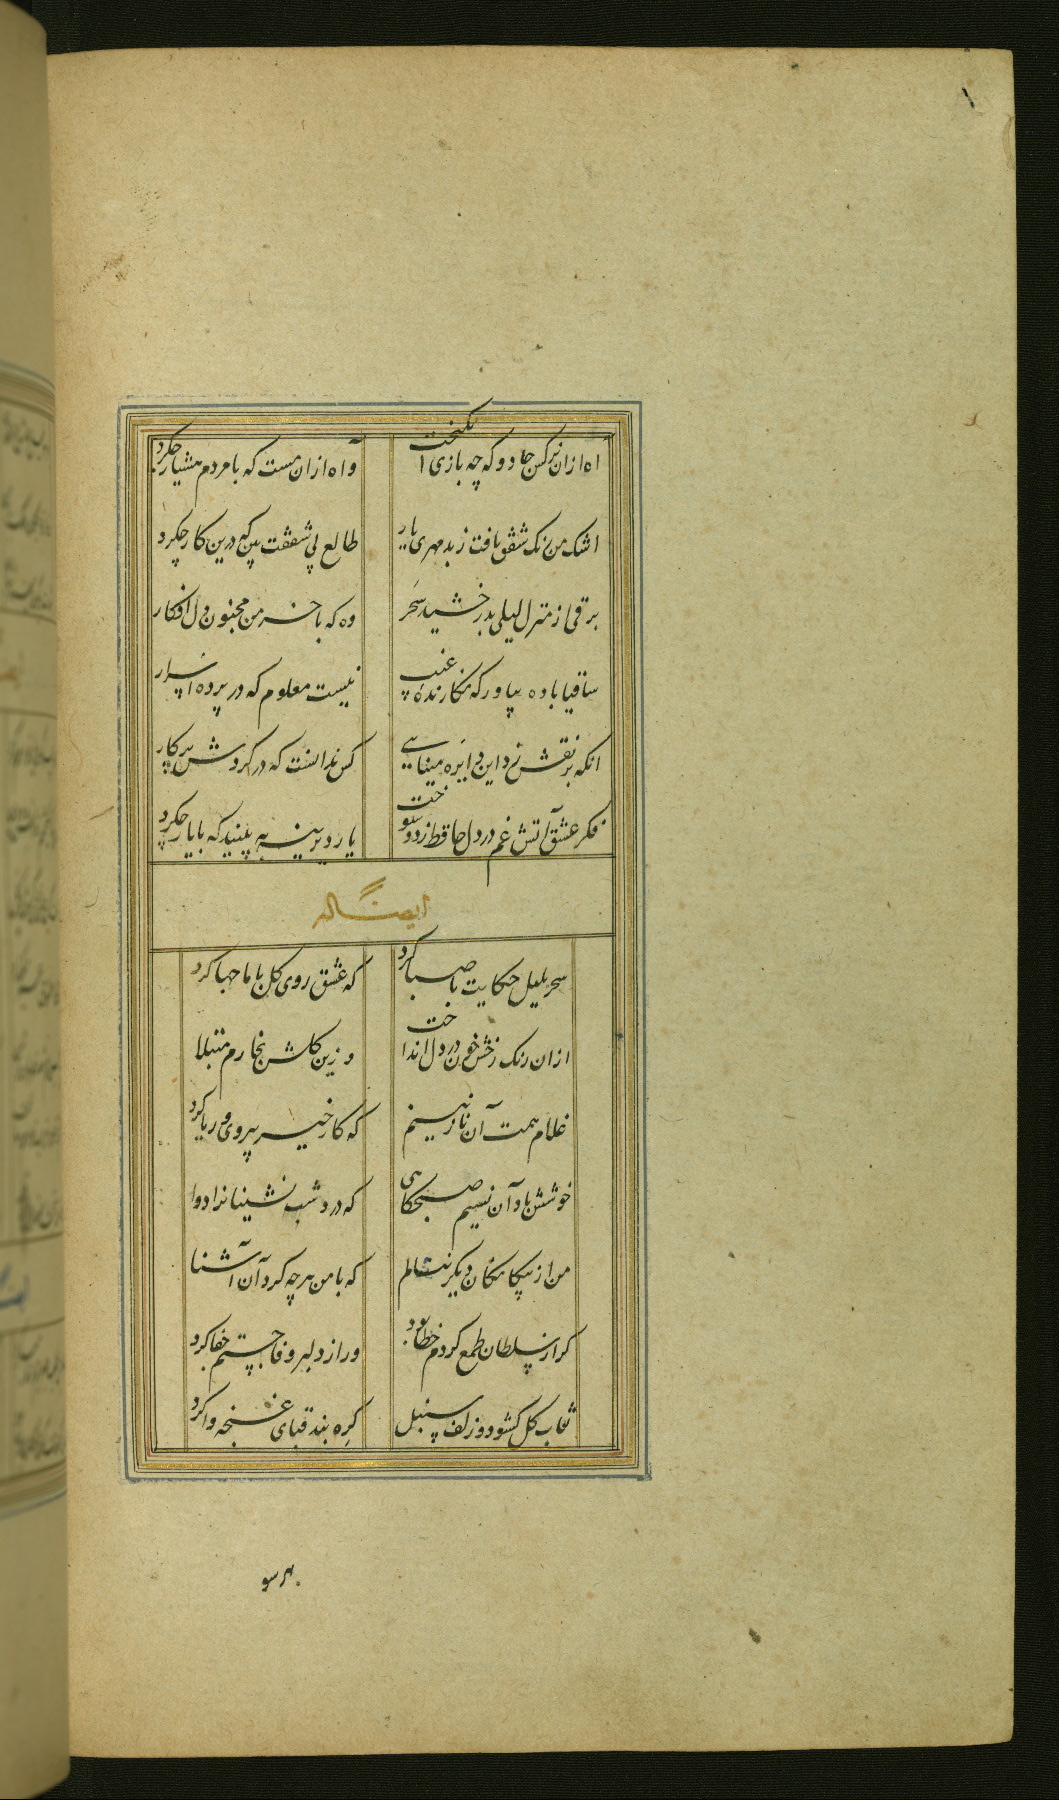 اه ازان نرکس جادو که چه بازی انکیخت
وآه ازان مست که با مردم هشیار چکرد
اشک من رنک شفق یافت ز بدمهری یار
طالع بی شفقت بین که درین کار چکرد
برقی از منزل لیلی بدرخشید سحر
وه که با خرمن مجنون دل افکار
ساقیا باده بیاور که نکارنده غیب
نیست معلوم که در پرده اسرار
انکه بر نقش زد این دایره مینایی
کس ندانست که در کردش پرکار
فکر عشق آتش غم در دل حافظ زد و سوخت
یار دیرینه ببینید که با یار چکرد
ایضا له
سحر بلبل حکایت با صبا کرد
که عشق روی کل با ما جها کرد
ازان رنک رخش خون در دل انداخت
وزین کلشن بخارم مبتلا
غلام همت آن نازنینم
که کار خیر بی روی و ریا کرد
خوشش باد آن نسیم صبحکاهی
که درد شب نشینانرا دوا
من از بیکانکان دیکر ننالم
که با من هرچه کرد آن آشنا
کر از سلطان طمع کردم خطا بود
ور از دلبر وفا جستم جفا کرد
نقاب کل کشود و زلف سنبل
کره بند قبای غنچه وا کرد
بهر سو